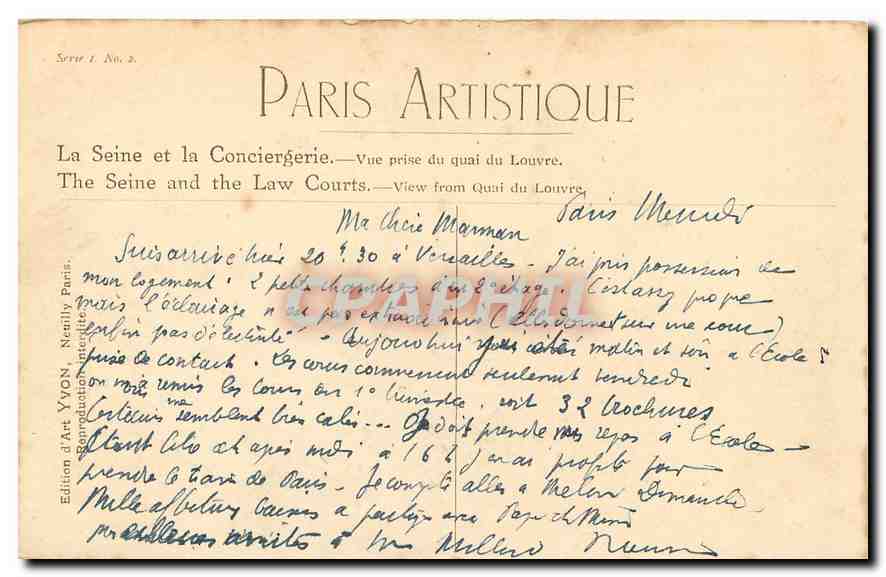 Serie 1. No. 2.
PARIS ARTISTIQUE
La Seine et la Conciergerie.—Vue prise du quai du Louvre.
The Seine and the Law Courts.—View from Quai du Louvre.
Paris Mercredi
Ma Chère Maman
Suis arrivé hier 20 h. 30 à Versailles - J'ai pris possession de
mon logement. 2 petites chambres au 2e étage. C'est assez propre
mais l'éclairage n'est pas extraordinaire (elles donnent sur une cour)
enfin pas d'électricité - Aujourd'hui matin et soir à l'École
prise de contact. Les cours commencent seulement vendredi
on nous a remis les cours du 1o trimestre. soit 32 brochures
semblent très calés... On doit prendre nos repas à l'École -
libre cet après midi à 16 h j'en ai profité pour
prendre le train de Paris - Je compte aller à Dimanche
Mille affectueux baisers à partager avec Papa et
à
CPARHIL
Edition d'Art YVON, Neuilly Paris.
Reproduction interdite.